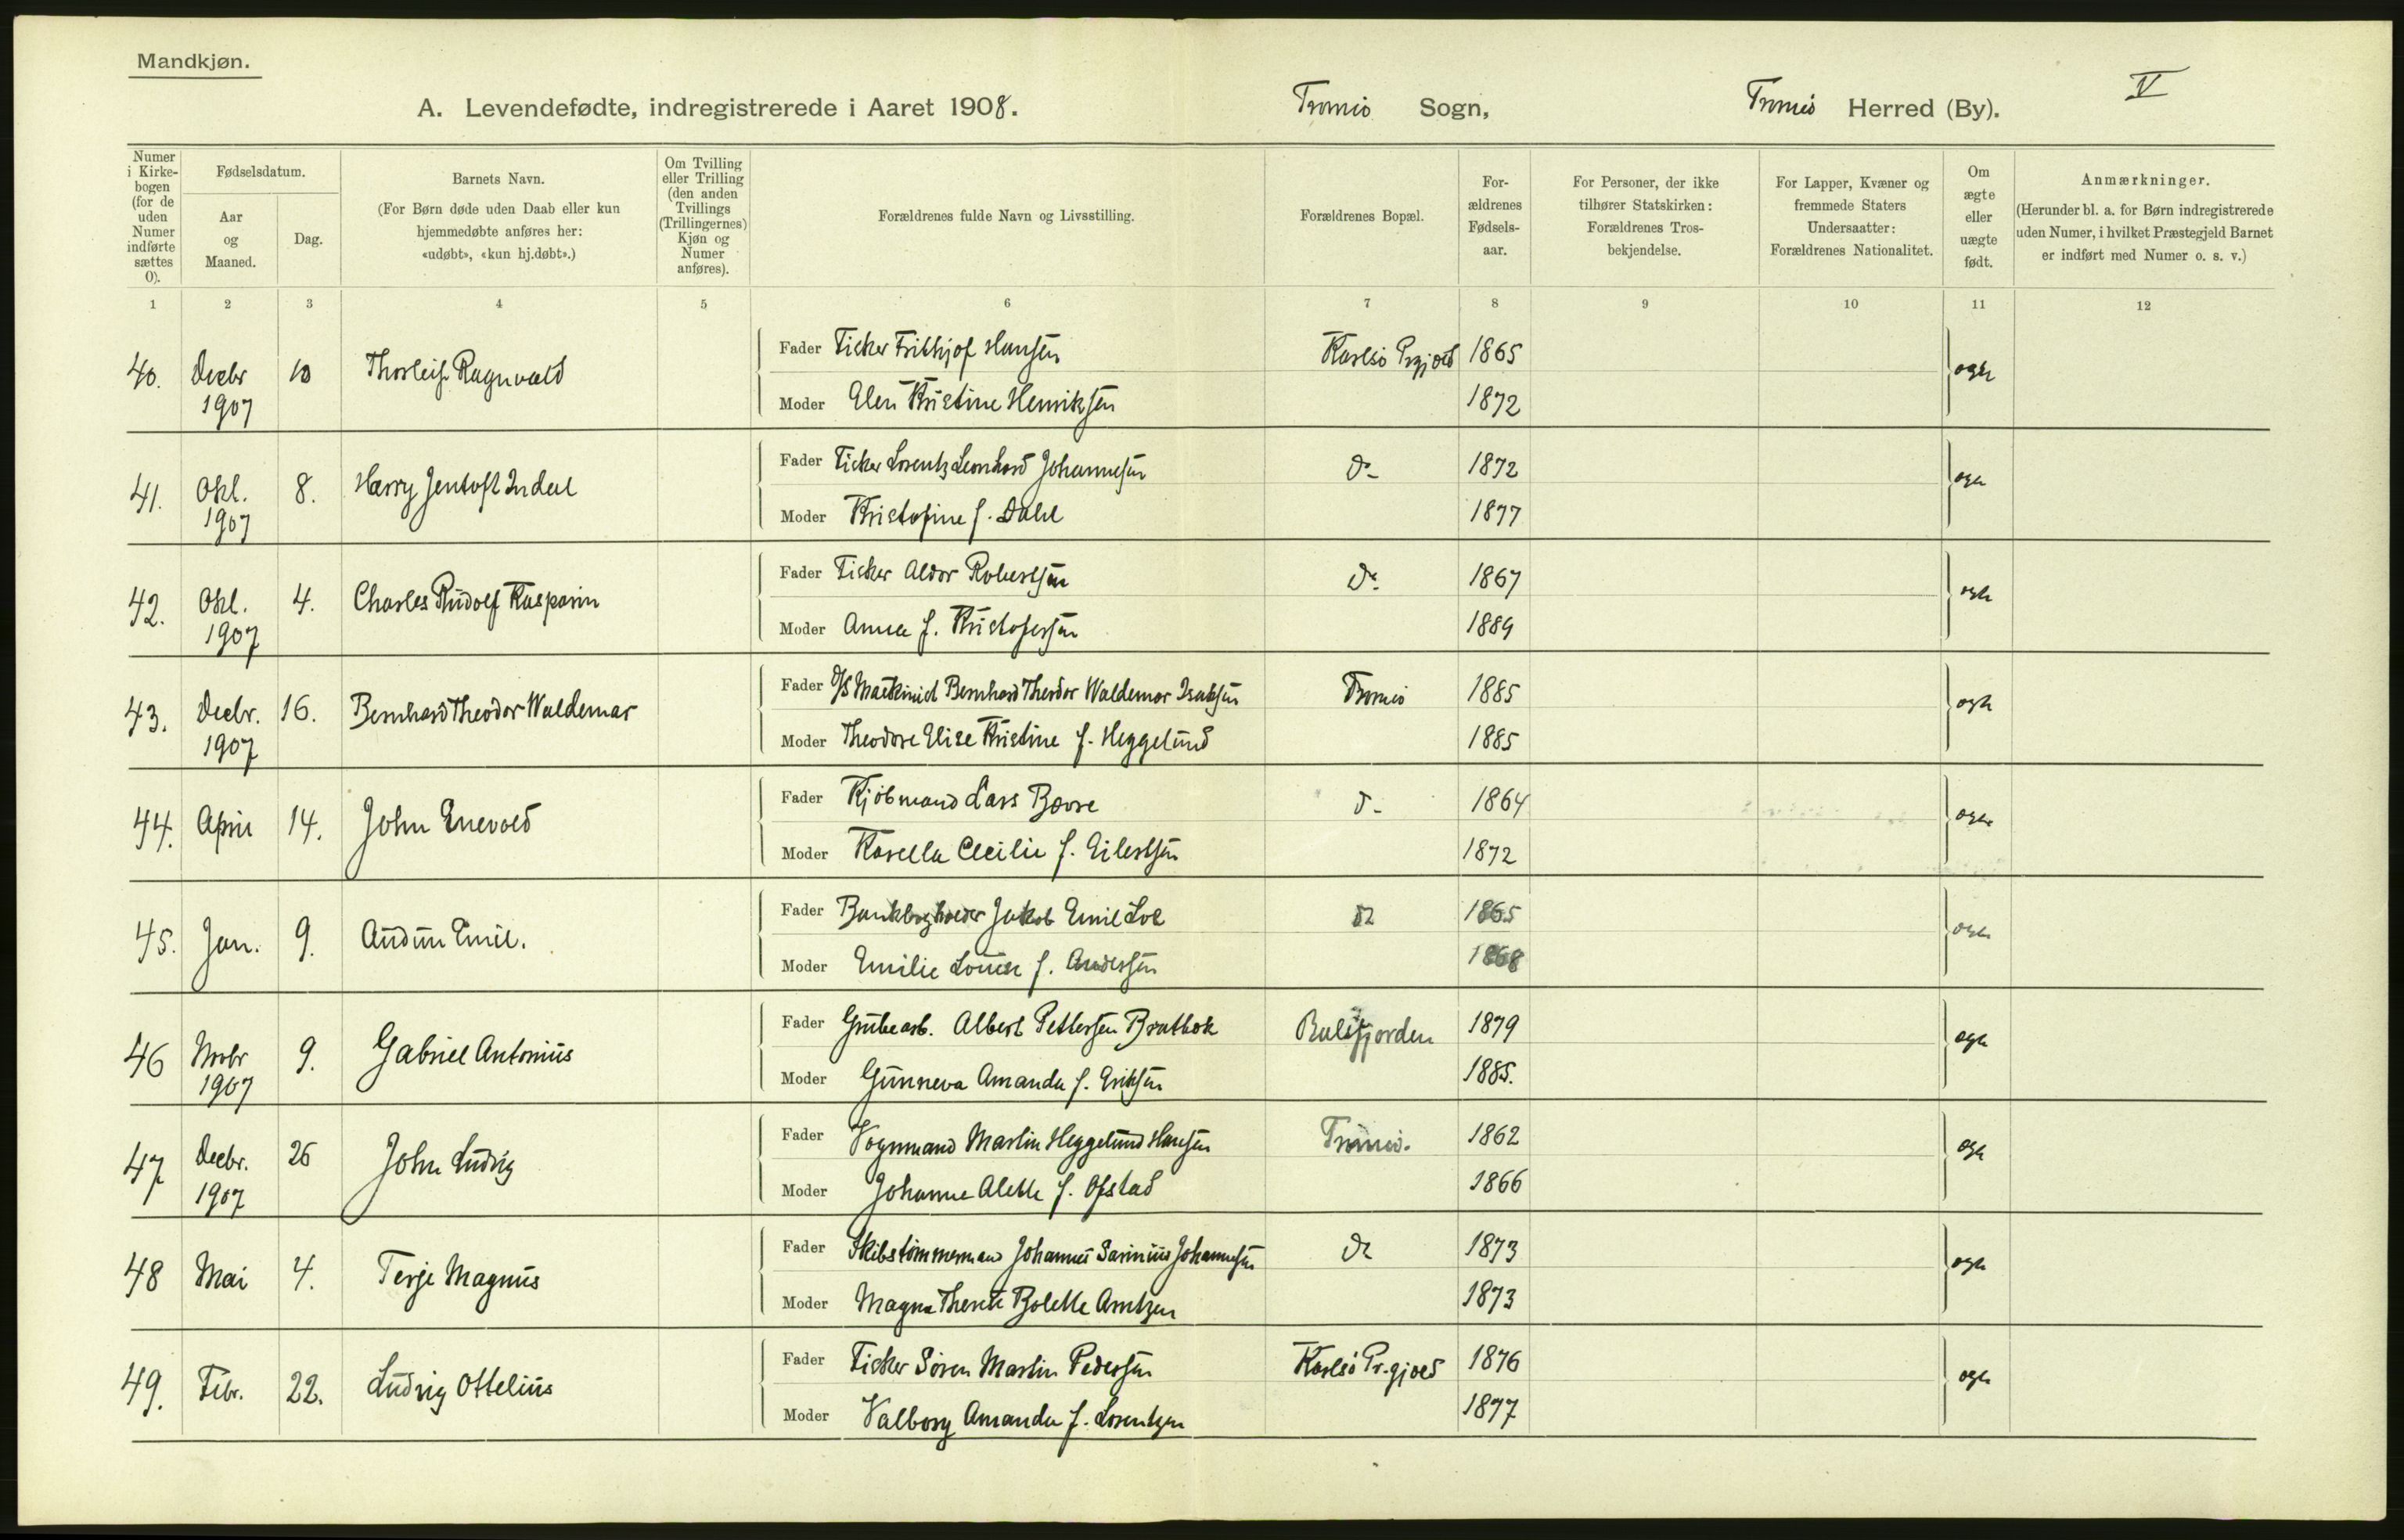 Mandkjøn.
A. Levendefødte, indregistrerede i Aaret 1908. Tromsø Sogn, Tromsø Herred (By). V
Numer i Kirkebogen (for de uden Numer indførte sættes 0).
Fødselsdatum.
Aar og Maaned.
Dag.
Barnets Navn.
(For Børn døde uden Daab eller kun hjemmedøbte anføres her: «udøbt», «kun hj.døbt».)
Om Tvilling eller Trilling (den anden Tvillings (Trillingernes) Kjøn og Numer anføres).
Forældrenes fulde Navn og Livsstilling.
Forældrenes Bopæl.
For-ældrenes Fødsels-aar.
For Personer, der ikke tilhører Statskirken: Forældrenes Tros-bekjendelse.
For Lapper, Kvæner og fremmede Staters Undersaatter: Forældrenes Nationalitet.
Om ægte eller uægte født.
Anmærkninger.
(Herunder bl. a. for Børn indregistrerede uden Numer, i hvilket Præstegjeld Barnet er indført med Numer o. s. v.)
1 2 3 4 5 6 7 8 9 10 11 12
40. Decbr 1907 10 Thorleif Ragnvald
Fader Fisker Frithjof Hansen Karlsø Prgjæld 1865 ægte
Moder Elen Kristine Henriksen 1872
41. Okt. 1907 8. Harry Jentoft Indal
Fader Fisker Lorentz Leonhard Johannesen do 1872 ægte
Moder Kristofine f. Dahl 1877
42. Okt. 1907 4. Charles Rudolf Kasparin
Fader Fisker Aldor Robertsen do 1867 ægte
Moder Anna f. Kristofersen 1889
43. Decbr. 1907 16. Bernhard Theodor Waldemar
Fader D/S Maskinist Bernhard Theodor Waldemar Isaksen Tromsø 1885 ægte
Moder Theodore Elise Kristine f. Heggelund 1885
44. April 14. John Enevold
Fader Kjøbmand Lars Bovre do 1864 ægte
Moder Kasella Cecilie f. Eilertsen 1872
45. Jan. 9. Audun Emil.
Fader Bankbogholder Jakob Emil Lol do 1865 ægte
Moder Emilie Louise f. Andersen 1868
46 Novbr 1907 9. Gabriel Antonius
Fader Grubearb. Albert Pettersen Bratbak Balsfjorden 1879 ægte
Moder Gunneva Amanda f. Eriksen 1885.
47 Decbr. 1907 26 John Ludvig
Fader Vognmand Martin Heggelund Hansen Tromsø. 1862 ægte
Moder Johanne Alette f. Ofstad 1866
48 Mai 4. Terje Magnus
Fader Skibstømmermand Johannes Sarinius Johannesen do 1873 ægte
Moder Magna Therese Bolette Arntzen 1873
49. Febr. 22. Ludvig Ottelius
Fader Fisker Søren Martin Pedersen Karlsø Pr.gjæld 1876 ægte
Moder Valborg Amanda f. Lorentzen 1877